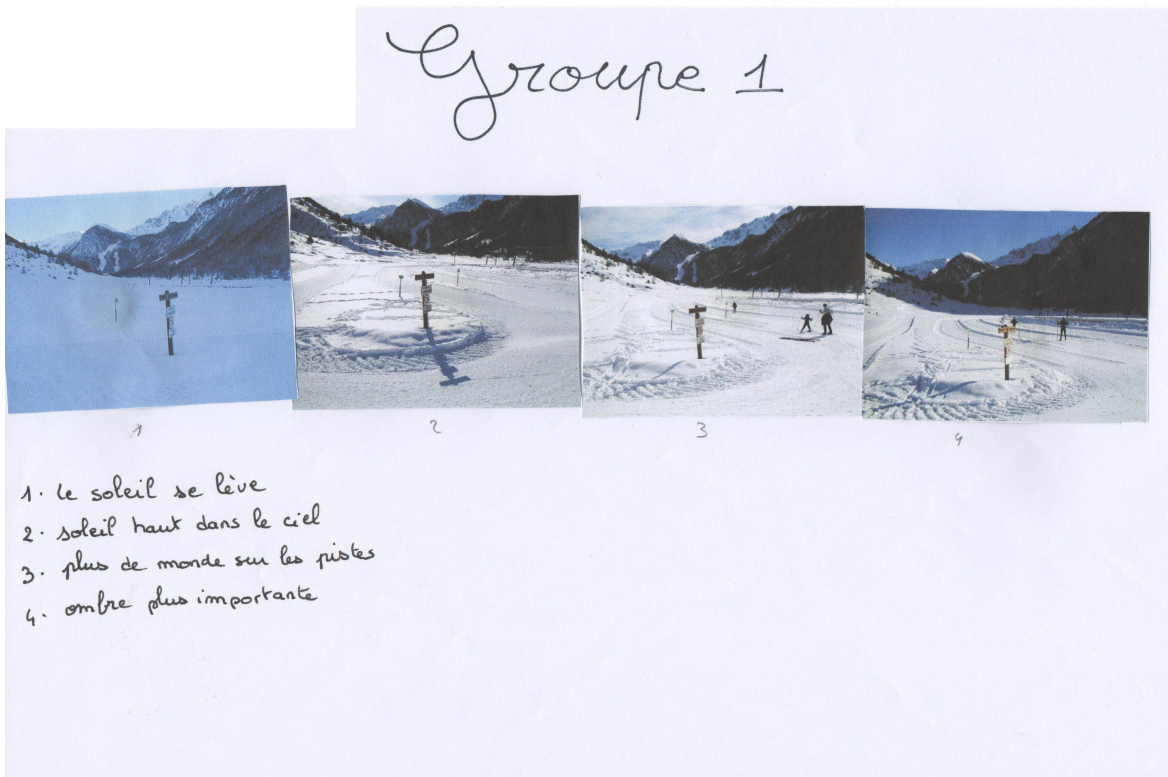 Groupe 1
1
2
3
4
1. Le soleil se lève
2. soleil haut dans le ciel
3. plus de monde sur les pistes
4. ombre plus importante